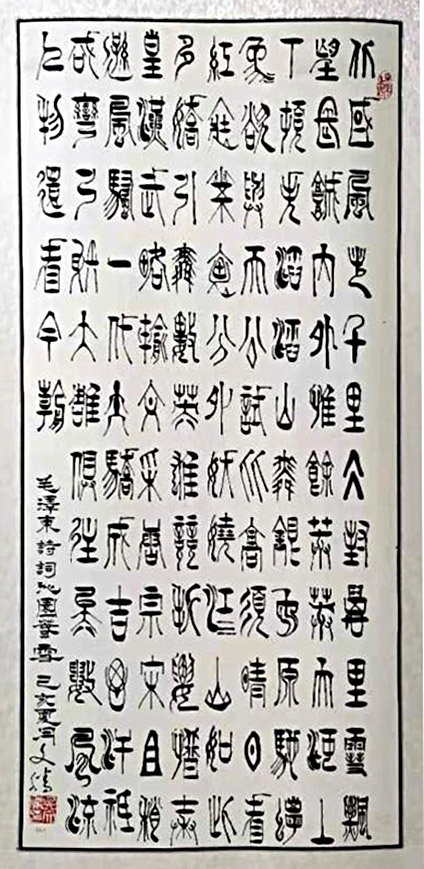 北國風光千里冰封萬里雪飄
望長城內外惟餘莽莽大河上
下頓失滔滔山舞銀蛇原馳蠟
象欲與天公試比高須晴日看
紅裝素裹分外妖嬈江山如此
多嬌引無數英雄競折腰惜秦
皇漢武略輸文采唐宗宋且稍
遜風騷一代天驕成吉思汗祇
識彎弓射大雕俱往矣數風流
人物還看今朝
毛澤東詩詞沁園春雪 己亥夏月文